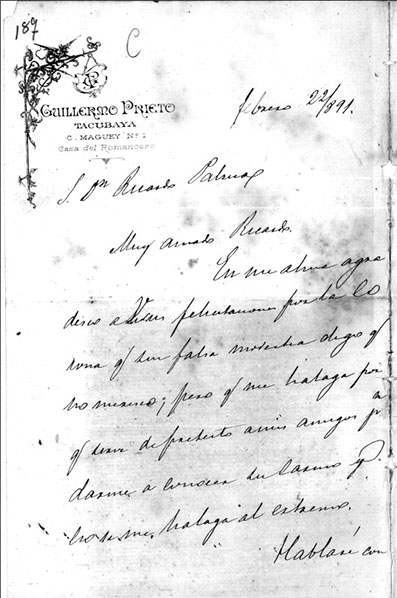 189
C
GUILLERMO PRIETO
TACUBAYA
C. MAGUEY Nº 1
Casa del Romancero
febrero 22/891.
S. Dn Ricardo Palma
Muy amado Ricardo.
En me alma agra
desco a Vdes felicitaciones por la co
rona q sin falsa modestia digo q
no meresco; pero q me halaga por
q sirve de pretexto a mis amigos pa
darme a conocer su cariño q
esto me halaga al extremo.
Hablaré con